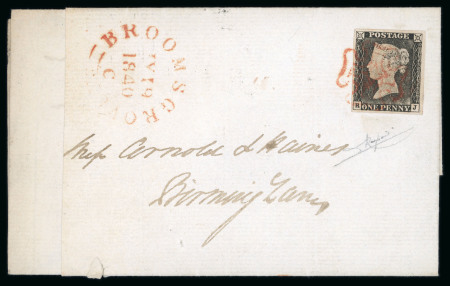 BROOMSGROVE
JY 19
1840
C
POSTAGE
ONE PENNY
J
Messrs Arnold & Haines
Birmingham